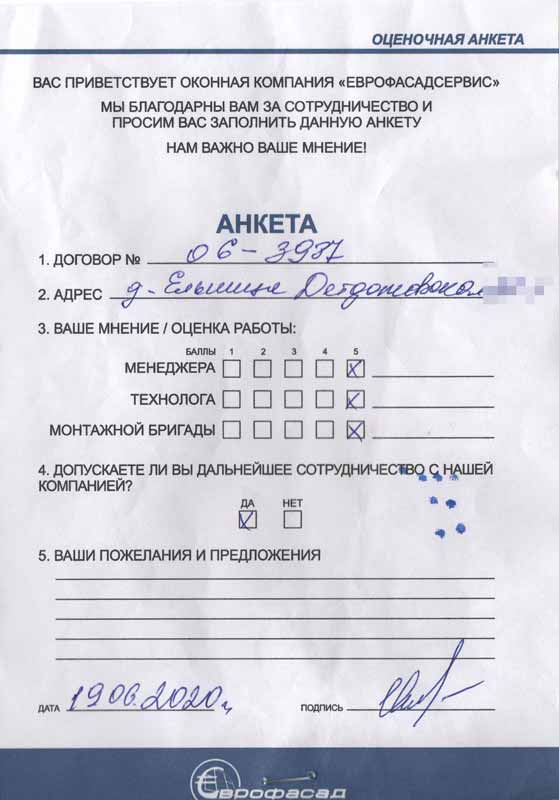 ОЦЕНОЧНАЯ АНКЕТА
ВАС ПРИВЕТСТВУЕТ ОКОННАЯ КОМПАНИЯ «ЕВРОФАСАДСЕРВИС»
МЫ БЛАГОДАРНЫ ВАМ ЗА СОТРУДНИЧЕСТВО И
ПРОСИМ ВАС ЗАПОЛНИТЬ ДАННУЮ АНКЕТУ
НАМ ВАЖНО ВАШЕ МНЕНИЕ!
АНКЕТА
1. ДОГОВОР № 06-3937
2. АДРЕС д.
3. ВАШЕ МНЕНИЕ / ОЦЕНКА РАБОТЫ:
БАЛЛЫ 1 2 3 4 5
МЕНЕДЖЕРА
ТЕХНОЛОГА
МОНТАЖНОЙ БРИГАДЫ
4. ДОПУСКАЕТЕ ЛИ ВЫ ДАЛЬНЕЙШЕЕ СОТРУДНИЧЕСТВО С НАШЕЙ
КОМПАНИЕЙ?
ДА НЕТ
5. ВАШИ ПОЖЕЛАНИЯ И ПРЕДЛОЖЕНИЯ
ДАТА 19.06.2020г. ПОДПИСЬ
Еврофасад